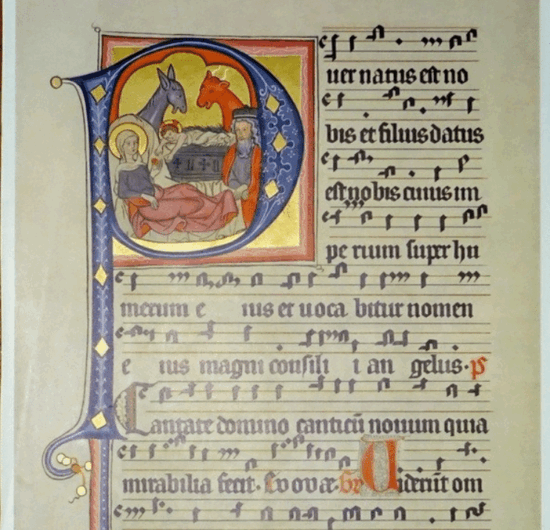 Puer natus est no
bis et filius datus
est nobis cuius im
pe rium super hu
merum e ius et uoca bitur nomen
e ius magni consili i an gelus. ps
Cantate domino canticū nouum quia
mirabilia fecit. Euouae. Gr Uiderūt om